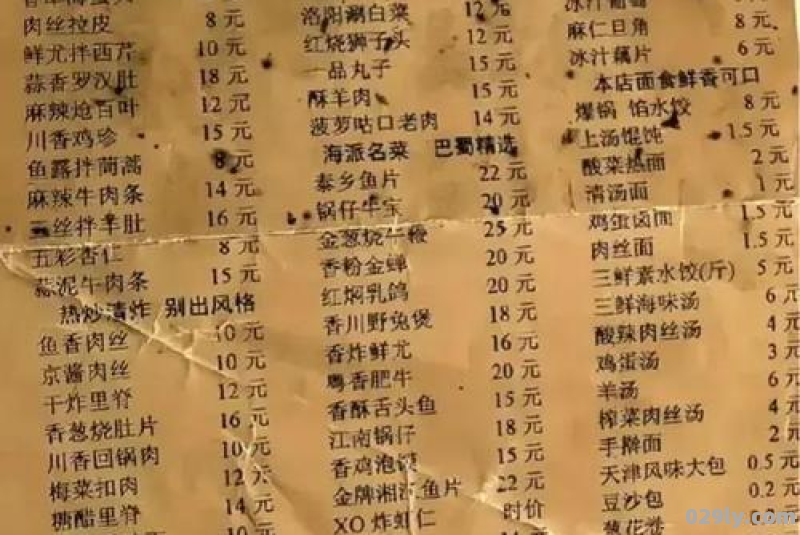 肉丝拉皮 8元
鲜尤拌西芹 10元
蒜香罗汉肚 18元
麻辣炝百叶 12元
川香鸡珍 15元
鱼露拌茼蒿 8元
麻辣牛肉条 14元
三丝拌羊肚 16元
五彩杏仁 8元
蒜泥牛肉条 15元
热炒清炸 别出风格
鱼香肉丝 10元
京酱肉丝 10元
干炸里脊 12元
香葱烧肚片 16元
川香回锅肉 10元
梅菜扣肉 12元
糖醋里脊 14元
10元
洛阳涮白菜 12元
红烧狮子头 12元
一品丸子 15元
酥羊肉 15元
菠萝咕口老肉 14元
海派名菜 巴蜀精选
泰乡鱼片 22元
锅仔牛宝 20元
金葱烧牛鞭 25元
香粉金蝉 20元
红焖乳鸽 20元
香川野兔煲 18元
香炸鲜尤 16元
粤香肥牛 20元
香酥舌头鱼 15元
江南锅仔 18元
香鸡泡馍 15元
金牌湘江鱼片 22元
XO炸虾仁 时价
冰汁葡萄
麻仁旦角 8元
冰汁藕片 6元
本店面食鲜香可口
爆锅 馅水饺 8元
上汤馄饨 1.5元
酸菜热面 2元
清汤面 1元
鸡蛋卤面 1.5元
肉丝面 1.5元
三鲜素水饺(斤) 5元
三鲜海味汤 6元
酸辣肉丝汤 4元
鸡蛋汤 3元
羊汤 6元
榨菜肉丝汤 4元
手擀面 2元
天津风味大包 0.5元
豆沙包 0.2元
葱花卷
029ly.com